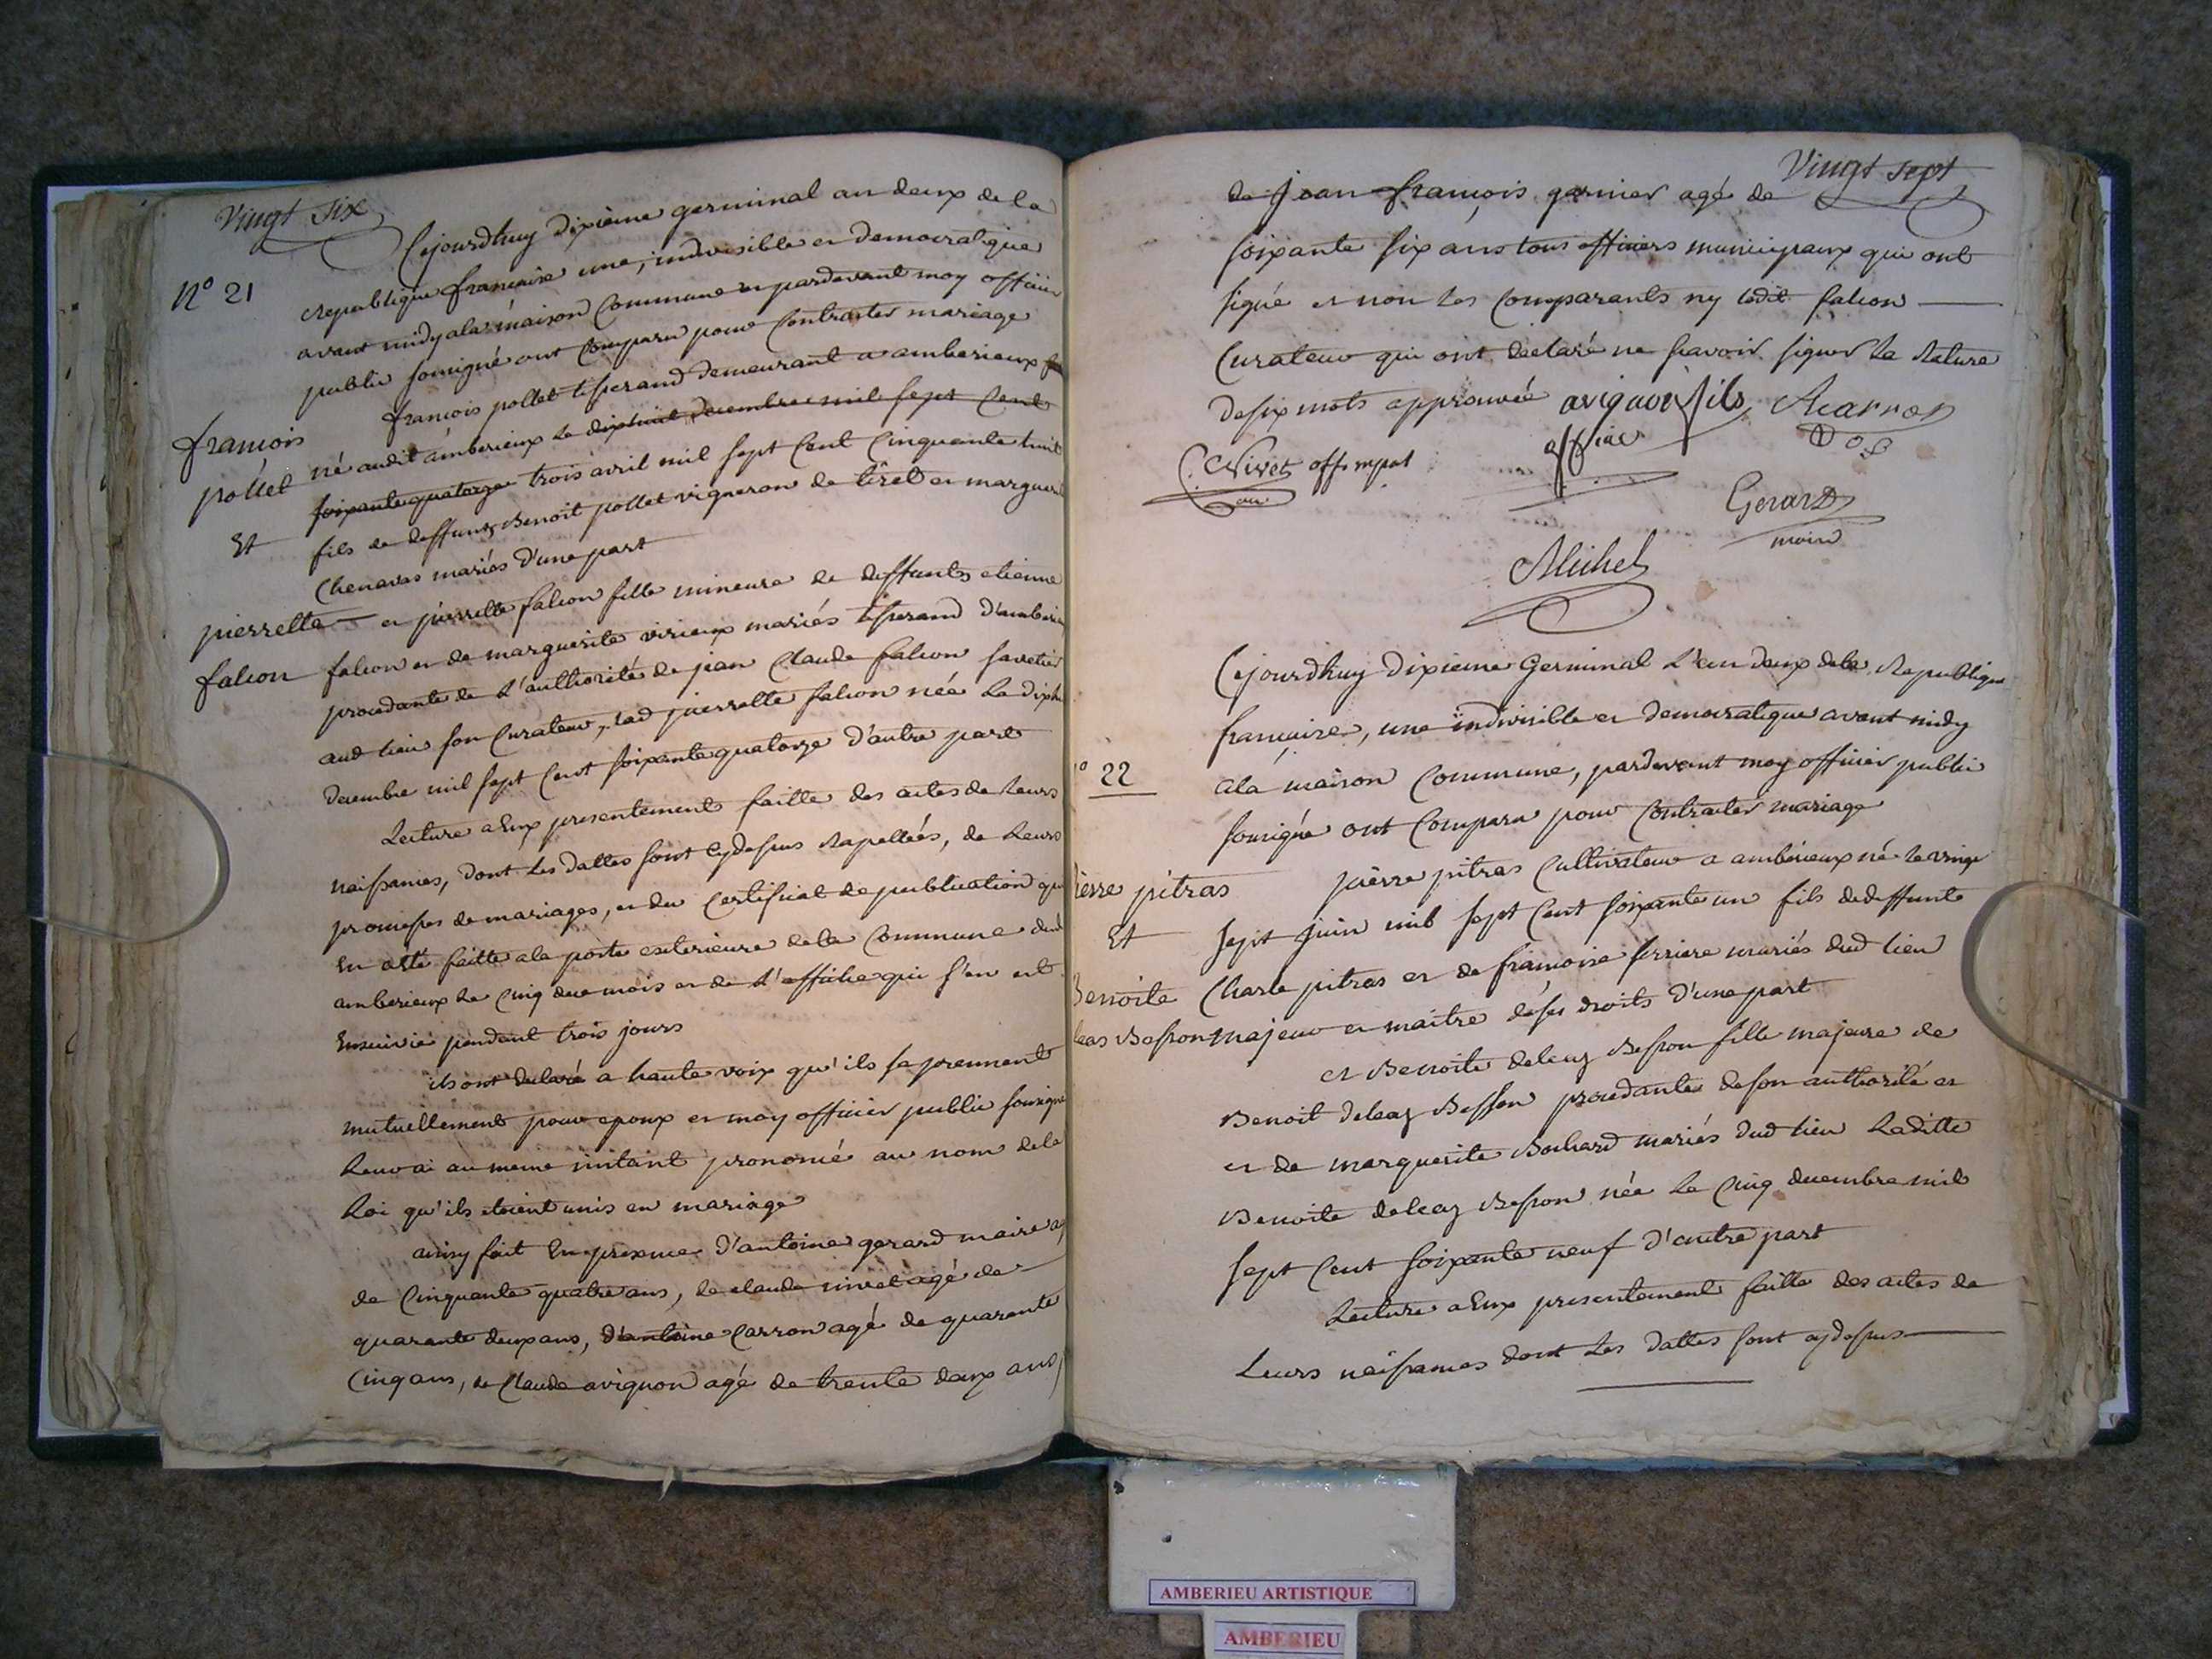 Vingt six
Cejourdhuy dixième germinal an deux de la
N° 21
republique francaise une, indivisible et democratique
avant midy ala maison Commune et pardevant moy officier
public sousigné ont Comparu pour Contracter mariage
francois pollet tisserand demeurant a amberieux
francois
né audit amberieux le dixhuit decembre mil sept Cent
pollet
soixante quatorze trois avril mil sept Cent Cinquante huit
Et
fils de deffunt Benoit pollet vigneron de tiret et marguerite
Chenavas mariés d'une part
pierrette
et pierrette falcon fille mineure de deffunts etienne
falcon
falcon et de marguerite virieux mariés tisserand d'amberieux
procedante de l'authorité de jean Claude falcon savetier
aud lieu son Curateur, lad pierrette falcon née le dixhuit
decembre mil sept Cent soixante quatorze d'autre part
Lecture a Eux presentement faitte des actes de leurs
naissances, dont les dattes sont cydessus rapellées, de leurs
promesses de mariages, et du Certificat de publication qui
En a été faitte ala porte exterieure de la Commune dud
amberieux le Cinq du mois et de l'affiche qui s'en est
Ensuivie pendant trois jours
ils ont declaré a haute voix qu'ils se prennent
mutuellement pour epoux et moy officier public sousigné
leur ai au meme instant prononcé au nom de la
Loi qu'ils etoient unis en mariage
ainsy fait En presence d'antoine gerard maire agé
de Cinquante quatre ans, de claude nivet agé de
quarante deux ans, d'antoine Carron agé de quarante
Cinq ans, de Claude avignon agé de trente deux ans,
Vingt sept
de Jean francois garnier agé de
soixante six ans tous officiers municipaux qui ont
signé et non les Comparants ny ledit falcon
Curateur qui ont declaré ne scavoir signer la rature
de six mots approuvée avignon fils ACarron
C. Nivet off mpal officier
Gerard
maire
Michel
Cejourdhuy dixieme Germinal L'an deux dela Republique
francaise, une indivisible et democratique avant midy
° 22
ala maison Commune, pardevant moy officier public
sousigné ont Comparu pour Contracter mariage
ierre pitras
pierre pitras Cultivateur a amberieux né le vingt
Et
sept juin mil sept Cent soixante un fils de deffunts
Benoite
Charle pitras et de francoise ferriere mariés dud lieu
leas Besson
majeur et maitre de ses droits d'une part
et Benoite deleaz Besson fille majeure de
Benoit deleaz Besson procedante de son authorité et
et de marguerite Bochard mariés dud lieu Laditte
Benoite deleaz Besson née le Cinq decembre mil
sept Cent soixante neuf d'autre part
Lecture a Eux presentement faitte des actes de
Leurs naissances dont les dattes sont cydessus
AMBERIEU ARTISTIQUE
AMBERIEU